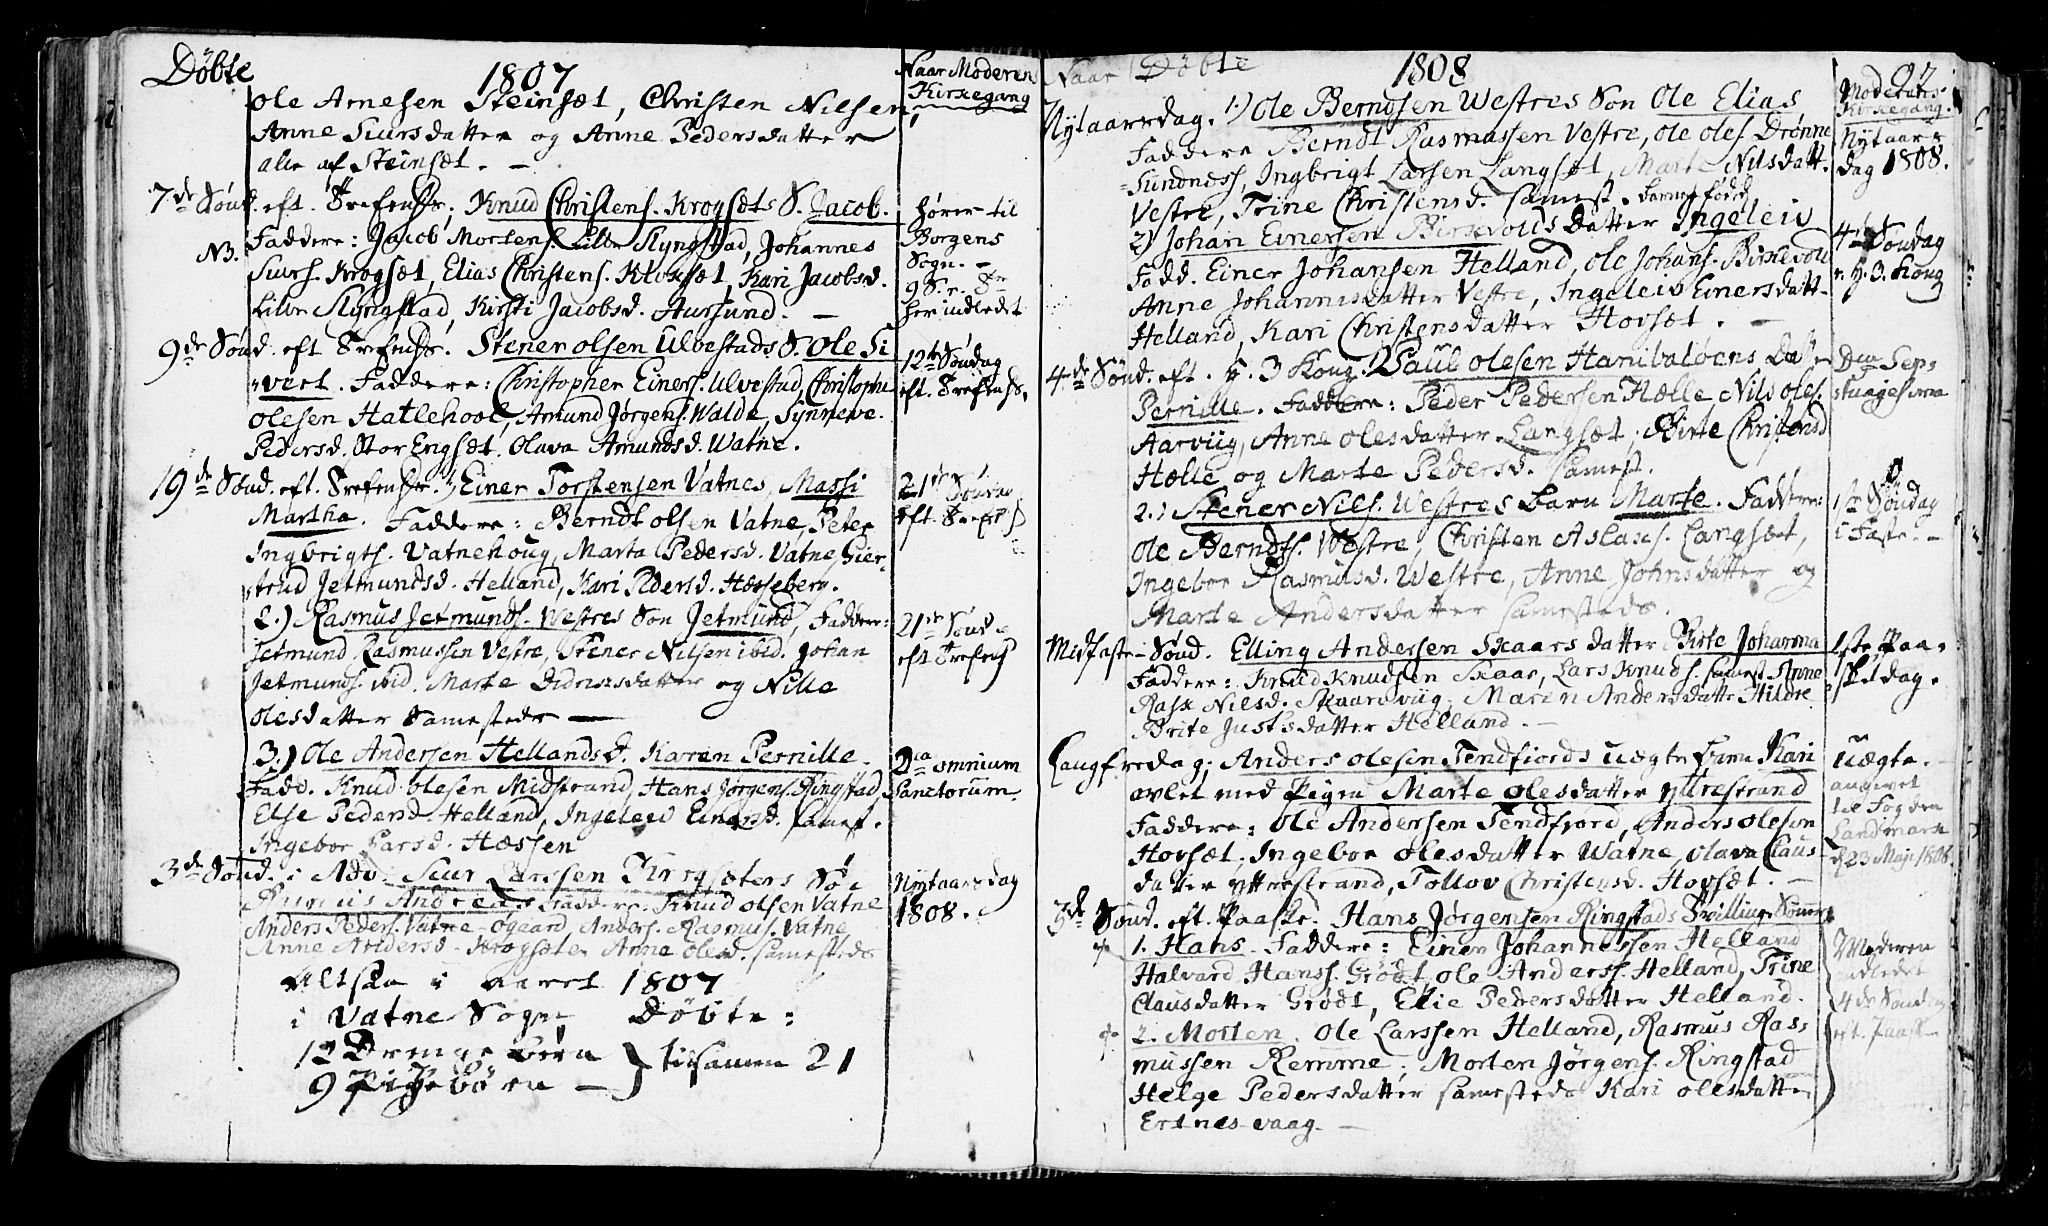 Döbte 1807 Naar Moderens Kirkegang
Ole Arnesen Steinsæt, Christen Nilsen,
Anne Siursdatter og Anne Pedersdatter
alle af Steinsæt. -
7de Sönd. eft. Trefoldh. Knud Christens. Krogsæts S. Jacob.
NB. Faddere: Jacob Mortens. Lille Slyngstad, Johannes
Siurs. Krogsæt, Elias Christens. Kloxsæt, Kari Jacobsd.
Lille Slyngstad, Kirsti Jacobsd. Aursund. -
hörer til
Borgens
Sogn. -
her indledet
9de Sönd. eft Trefoldh. Stener Olsen Ulvestads S. Ole Si
vert. Faddere: Christopher Einers. Ulvestad, Christopher
Olesen Hatlehool, Amund Jørgens. Walde, Synneve
Pedersd. Stor Engsæt. Olava Amundsd. Watne.
12te Søndag
eft. Trefoldh.
19de Sönd. eft. Trefoldh. 1) Einer Torstensen Vatnes, Massi
Martha. Faddere: Berndt Olsen Vatne, Peter
Ingbrigts. Vatnehoug, Marta Pedersd. Vatne, Gier-
trud Jetmundsd. Helland, Kari Pedersd. Hæsseberg.
21de Søndag
eft. Trefoldh
2.) Rasmus Jetmunds. Westres Son Jetmund, Faddere:
Jetmund Rasmussen Vestre, Stener Nilsen ibid. Johan
Jetmunds. ibid. Marte Didriksdatter og Nille
Olesdatter Samesteds -
21de Sönd.
eft Trefoldh
3.) Ole Andersen Hellands D. Karen Pernille.
Fadd. Knud Olesen Midstrand, Hans Jørgens. Ringstad
Else Pedersd. Helland, Ingeleiv Einersd. samest.
Ingebor Larsd. Hæssen
Dca omnium
Sanctorum.
3de Sönd. i Adv. Siur Larssen Krogsæters Sön
Andreas Faddere: Knud Olsen Vatne
Anders Peders. Vatne-Ögaard, Anders Rasmus. Vatne
Anne Andersd. Krogsæter Anne Olesd. samesteds
Nytaarsdag
1808.
Altsaa i aaret 1807
i Vatne Sogn Döbte:
12 Drengebörn
9 Pigebörn } tilsamen 21
Naar Döbte 1808 97
Moderens
Kirkegang.
Nytaarsdag. 1.) Ole Berndsen Westres Son Ole Elias
Faddere Berndt Rasmussen Vestre, Ole Oles. Drönne
Sundness, Ingbrigt Larsen Langsæt, Marte Nilsdatt.
Vestre, Trine Christensd. samest.
Nytaars
dag 1808.
2) Johan Einersen Birkevolds Datter Ingeleiv
Fadd. Einer Johansen Helland, Ole Johans. Birkevold
Anne Johannisdatter Vestre, Ingeleiv Einersdatt.
Helland, Kari Christensdatter Hovsæt. -
4de Söndag
e. H. 3. Kong
4de Sönd. eft. H. 3 Kong. 1. Paul Olesen Hanibaløens Datter
Pernille. Faddere: Peder Pedersen Hælle Nils Oles.
Aarviig, Anne Olesdatter Langsæt, Birte Christensd
Hælle og Marte Pedersd. samest.
Dca Sep-
tuagesima
2.) Stener Nils. Westres barn Marte. Faddere:
Ole Berndts. Westre, Christen Aslaks. Langsæt,
Ingebor Rasmusd. Westre, Anne Johnsdatter og
Marte Andersdatter samesteds.
1ste Søndag
i Faste. -
Midfaste-Sønd. Elling Andersen Skaars datter Birte Johanna
Faddere: Knud Knudsen Skaar, Lars Knuds. samest. Anne
Nilsd. Skaarsviig, Maren Andersdatter Hildre
Brite Justsdatter Helland. -
1ste Paa-
skedag.
Langfredag. Anders Olesen Tendfjords uægte barn Kari
avlet med Pigen Marte Olesdatter Yttrestrand
Faddere: Ole Andersen Tendfjord, Anders Oleson
Hovsæt. Ingebor Olesdatter Watne, Olava Claus-
datter Yttrestrand, Tollov Christensd. Hovsæt. -
uægte.
angivet
til Fogden
Landmark
d. 23 Maji 1808.
3de Sønd. eft. Paaske. Hans Jørgensen Ringstads Tvillinge Sönner
1. Hans. Faddere: Einer Johannessen Helland
Halvard Hanss. Grödt, Ole Anderss. Helland, Trine
Clausdatter Grödt, Elie Pedersdatter Helland.
2. Morten. Ole Larssen Helland, Rasmus Ras-
mussen Remme, Morten Jørgens. Ringstad
Helge Pedersdatter samesteds Kari Olesdatter
Ertnesvaag. -
Moderen
indledet
4de Söndag
eft. Paaske